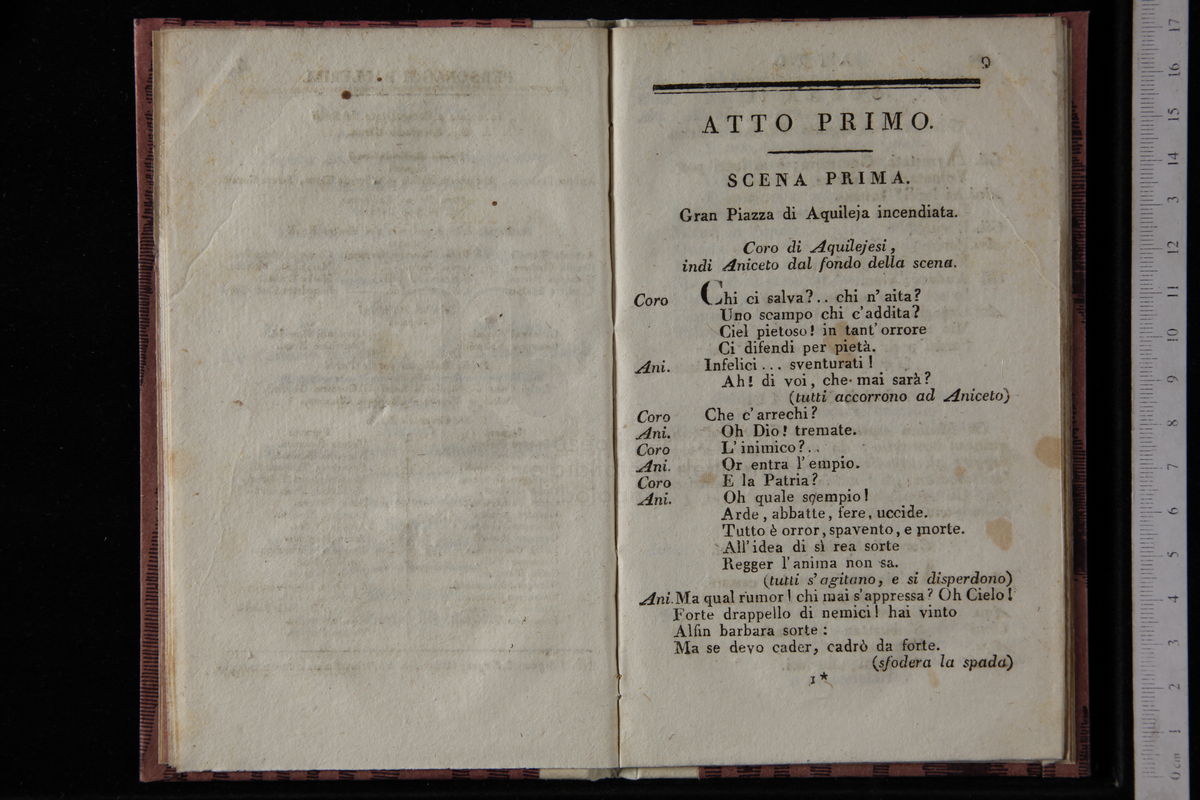 9
ATTO PRIMO.
SCENA PRIMA.
Gran Piazza di Aquileja incendiata.
Coro di Aquilejesi,
indi Aniceto dal fondo della scena.
Coro Chi ci salva?.. chi n'aita?
Uno scampo chi c'addita?
Ciel pietoso! in tant'orrore
Ci difendi per pietà.
Ani. Infelici... sventurati!
Ah! di voi, che mai sarà?
(tutti accorrono ad Aniceto)
Coro Che c'arrechi?
Ani. Oh Dio! tremate.
Coro L'inimico?..
Ani. Or entra l'empio.
Coro E la Patria?
Ani. Oh quale scempio!
Arde, abbatte, fere, uccide.
Tutto è orror, spavento, e morte.
All'idea di sì rea sorte
Regger l'anima non sa.
(tutti s'agitano, e si disperdono)
Ani. Ma qual rumor! chi mai s'appressa? Oh Cielo!
Forte drappello di nemici! hai vinto
Alfin barbara sorte:
Ma se devo cader, cadrò da forte.
(sfodera la spada)
1*
0 cm 1 2 3 4 5 6 7 8 9 10 11 12 13 14 15 16 17